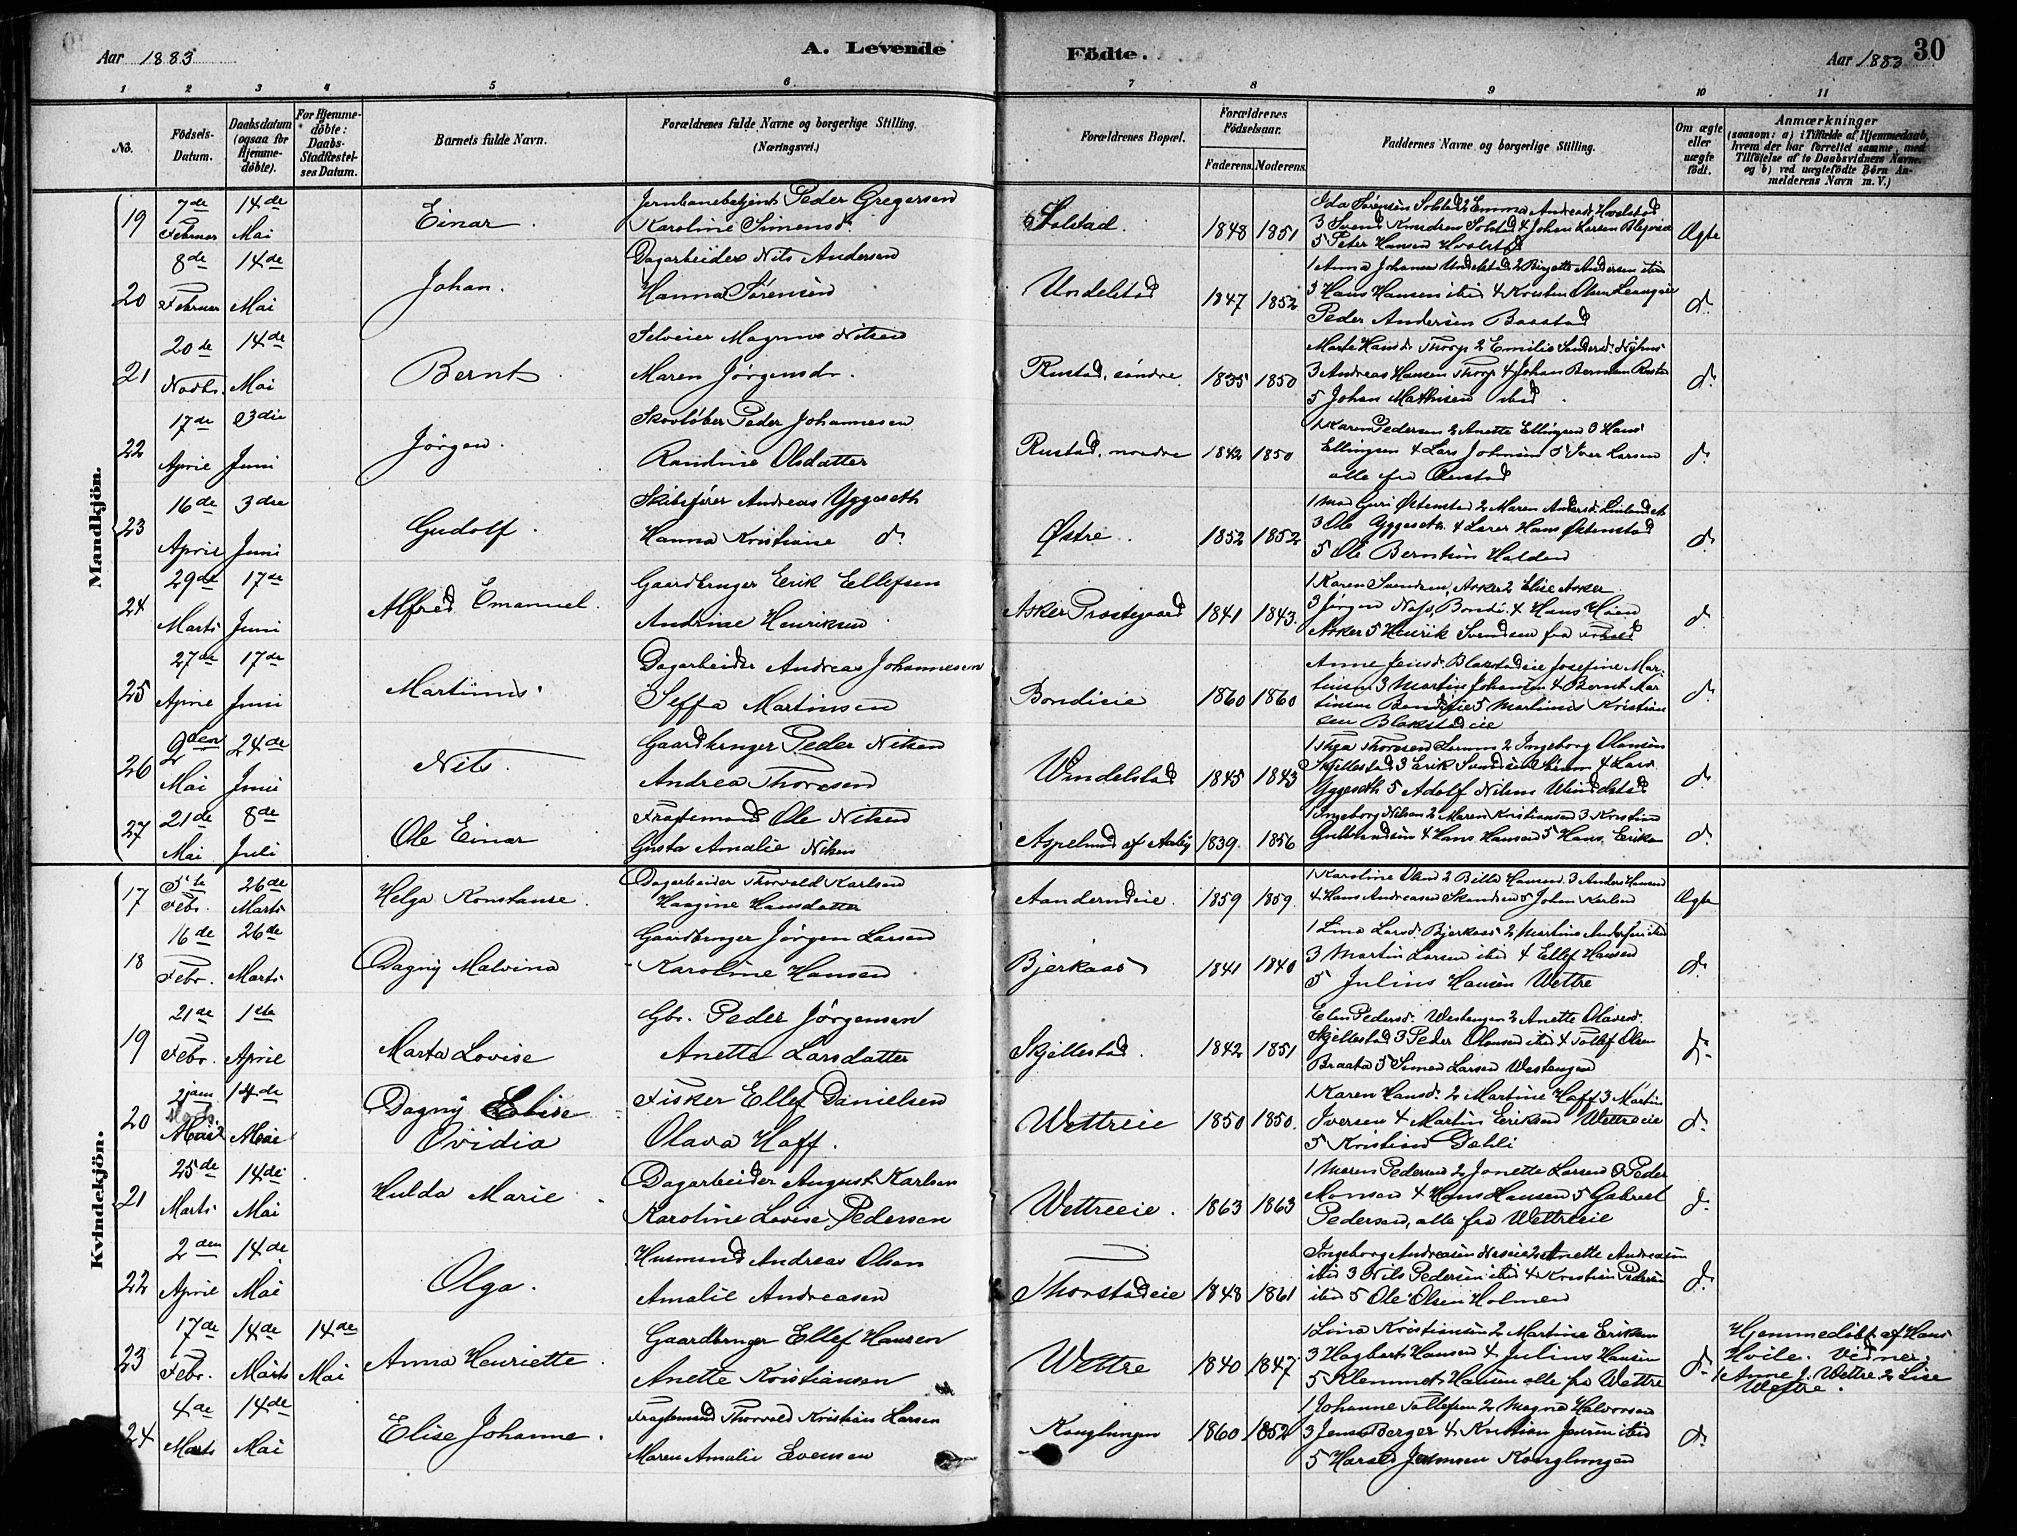 Aar 1883
A. Levende
Födte.
Aar 1883
30
1 2 3 4 5 6 7 8 9 10 11
No.
Födsels-Datum.
Daabsdatum (ogsaa for Hjemme-döbte).
For Hjemme-döbte: Daabs-Stadfæstel-ses Datum.
Barnets fulde Navn.
Forældrenes fulde Navne og borgerlige Stilling. (Næringsvei.)
Forældrenes Bopæl.
Forældrenes Födselsaar.
Faderens. Moderens.
Faddernes Navne og borgerlige Stilling.
Om ægte eller uægte födt.
Anmærkninger
(saasom: a) i Tilfælde af Hjemmedaab, hvem der har forrettet samme, med Tilföielse af to Daabsvidners Navne, og b) ved uægtefödte Börn An-melderens Navn m. V.)
Mandkjön.
19 7de Februar 14de Mai Einar. Jernbanebetjent Peder Gregersen
Karoline Simensd. Solstad. 1848 1851
3 Svend Knudsen Solstad 4 Johan Larsen
5 Peter Hansen Hvalstad Ægte
20 8de Februar 14de Mai Johan. Dagarbeider Nils Andersen
Hanna Sørensen Undelstad 1847 1852
1 Anna Johansen Undelstad 2 Birgette Andersen ibid
3 Hans Hansen ibid 4 Kristen Olsen
Peder Andersen Baastad do
21 20de Novbr. 14de Mai Bernt Selveier Magnus Nilsen
Maren Jørgensdr. Rustad, søndre 1835 1850
Marte Hansd. Thorp 2 Emilie
3 Andreas Hansen Thorp 4 Johan Berntsen
5 Johan Mathisen ibid do
22 17de April 3die Juni Jørgen. Skovløber Peder Johannesen
Randine Olsdatter Rustad, nordre 1842 1850
1 Karen Pedersen 2 Anette Ellingsen 3 Hans
Ellingsen 4 Lars Johnsen 5 Iver Larsen
alle fra Rustad do
23 16de April 3die Juni Gudolf. Skibsfører Andreas Yggeseth
Hanna Kristiane do Østre. 1852 1852
1 Guri Østenstad 2 Maren Andersd.
3 Ole Yggeseth 4 Lærer Hans Østenstad
5 Ole Berntsen Halden do
24 29de Marts 17de Juni Alfred Emanuel. Gaardbruger Erik Ellefsen
Andrine Henriksen Asker Præstegaard 1841 1843.
1 Karen Svendsen, Asker 2 Elise Asker
3 Jørgen Bondi. 4 Hans Høen
Asker 5 Henrik Svendsen fra do
25 27de April 17de Juni Martinus Dagarbeider Andreas Johannesen
Seffa Martinsen Bondieie 1860 1860
Anne Blakstadeie Josefine Mar-
tinsen 3 Martin Johansen 4 Bernt Mar
tinsen Bondieie 5 Martinus Kristian
sen Blakstadeie do
26 9den Mai 24de Juni Nils. Gaardbruger Peder Nilsen
Andrea Thoresen Undelstad 1845 1843
1 Thea Thoresen 2 Ingeborg Olausen
Skjellestad 3 Erik 4 Lars
Yggeseth 5 Adolf Nilsen Undelstad do
27 21de Mai 8de Juli Ole Einar Ole Nilsen
Gusta Amalie Nilsen Aspelund af Aaby 1839. 1856
Ingeborg Nilsen 2 Maren Kristiansen 3 Kristine
Gulbrandsen 4 Hans Hansen 5 Hans Eriksen do
Kvindekjön.
17 5te Febr. 26de Marts Helga Konstanse. Dagarbeider Thorvald Karlsen
Haagine Hansdatter Aanderudeie. 1859 1859.
1 Karoline 2 Bille Hansen 3 Anders Hansen
4 Hans Andreasen 5 Johan Karlsen Ægte
18 16de Febr. 26de Marts Dagny Malvina Gaardbruger Jørgen Larsen
Karoline Hansen Bjerkaas 1841 1840
1 Lina Larsd. Bjerkaas 2 Martine Andersen ibid
3 Martin Larsen ibid 4 Ellef Hansen
5 Julius Hansen Wettre do
19 21de Febr. 1ste April Marta Lovise Gbr. Peder Jørgensen
Anette Larsdatter Skjellestad. 1842 1851
Elen Pedersd. Westengen 2 Anette Olausd.
Skjellestad 3 Peder Olausen ibid 4 Tollef Olsen
Braata 5 Simen Larsen Westengen do
20 Marts 14de Mai Dagny Elise
Ovidia Fisker Ellef Danielsen
Olava Haff. Wettreeie 1850 1850.
1 Karen Hansd. 2 Martine Haff 3 Martin
Iversen 4 Martin Eriksen Wettreeie
5 Kristian Dæhli do
21 25de Marts 14de Mai Hulda Marie Dagarbeider August Karlsen
Karoline Lovise Pedersen Wettreeie. 1863 1863
1 Maren Pedersen 2 Janette Larsen 3 Peder
Monsen 4 Hans Hansen 5 Gabriel
Pedersen, alle fra Wettreeie do
22 2den April 14de Mai Olga. Husmand Andreas Olsen
Amalie Andreasen Thorstadeie 1848 1861
Ingeborg Andreasen Neseie 2 Anette Andreasen
ibid 3 Nils Pedersen ibid 4 Kristian Pedersen
ibid 5 Ole Olsen Holmen do
23 17de Febr. 14de Marts 14de Mai Anna Henriette. Gaardbruger Ellef Hansen
Anette Kristiansen Wettre 1840 1847
1 Lina Kristiansen 2 Martine Eriksen
3 Hagbart Hansen 4 Julius Hansen
5 Klemmet Hansen alle fra Wettre do
Hjemmedöbt af Hans
Hvile. Vidner:
1 Anne J. Wettre 2 Lise
Wettre.
24 4de Marts 14de Mai Elise Johanne. Thorvald Kristian Larsen
Maren Amalie Evensen Konglungen 1860 1852
1 Johanne Tollefsen 2 Magna Halvorsen
3 Jens Berger 4 Kristian Jensen ibid
5 Harald Konglungen do